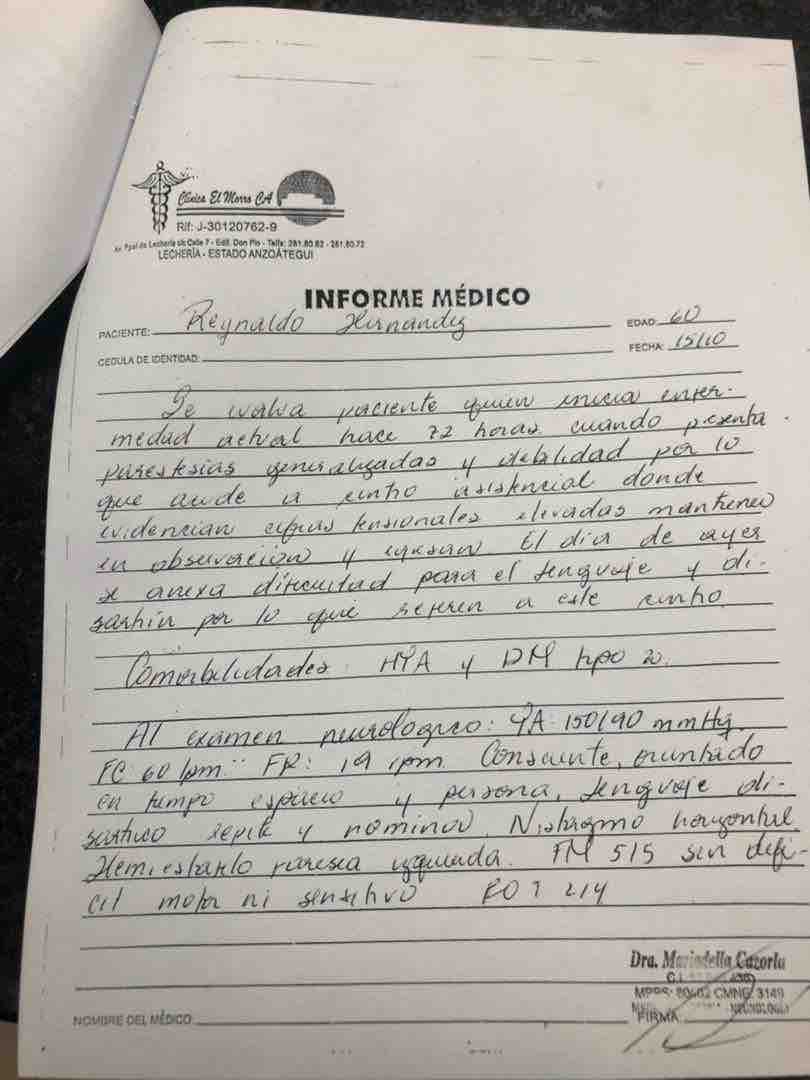 Clínica El Morro CA
Rif: J-30120762-9
Av. Ppal de Lechería c/c Calle 7 - Edif. Don Pio - Telfs: 281.80.62 - 281.80.72
LECHERÍA - ESTADO ANZOÁTEGUI
INFORME MÉDICO
PACIENTE: Reynaldo Hernandez EDAD: 60
CEDULA DE IDENTIDAD: FECHA: 15/10
Se evalua paciente quien inicia enfer-
medad actual hace 72 horas cuando presenta
parestesias generalizadas y debilidad por lo
que acude a centro asistencial donde
evidencian cifras tensionales elevadas mantienen
en observacion y egresan. El dia de ayer
se anexa dificultad para el lenguaje y di-
sartria por lo que refieren a este centro
Comorbilidades: HTA y DM tipo
Al examen neurologico: TA: 150/90 mmHg.
FC: 60 lpm FR: 19 rpm Consciente, orientado
en tiempo espacio y persona, lenguaje di-
sartrico repite y nomina. Nistagmo horizontal
paresia izquierda. FM 5/5 sin defi-
cit motor ni sensitivo ROT 2/4
Dra. Mariadella Cazorla
C.I.
MPPS: 80402 CMNE: 3149
NEUROLOGÍA
NOMBRE DEL MÉDICO: FIRMA: